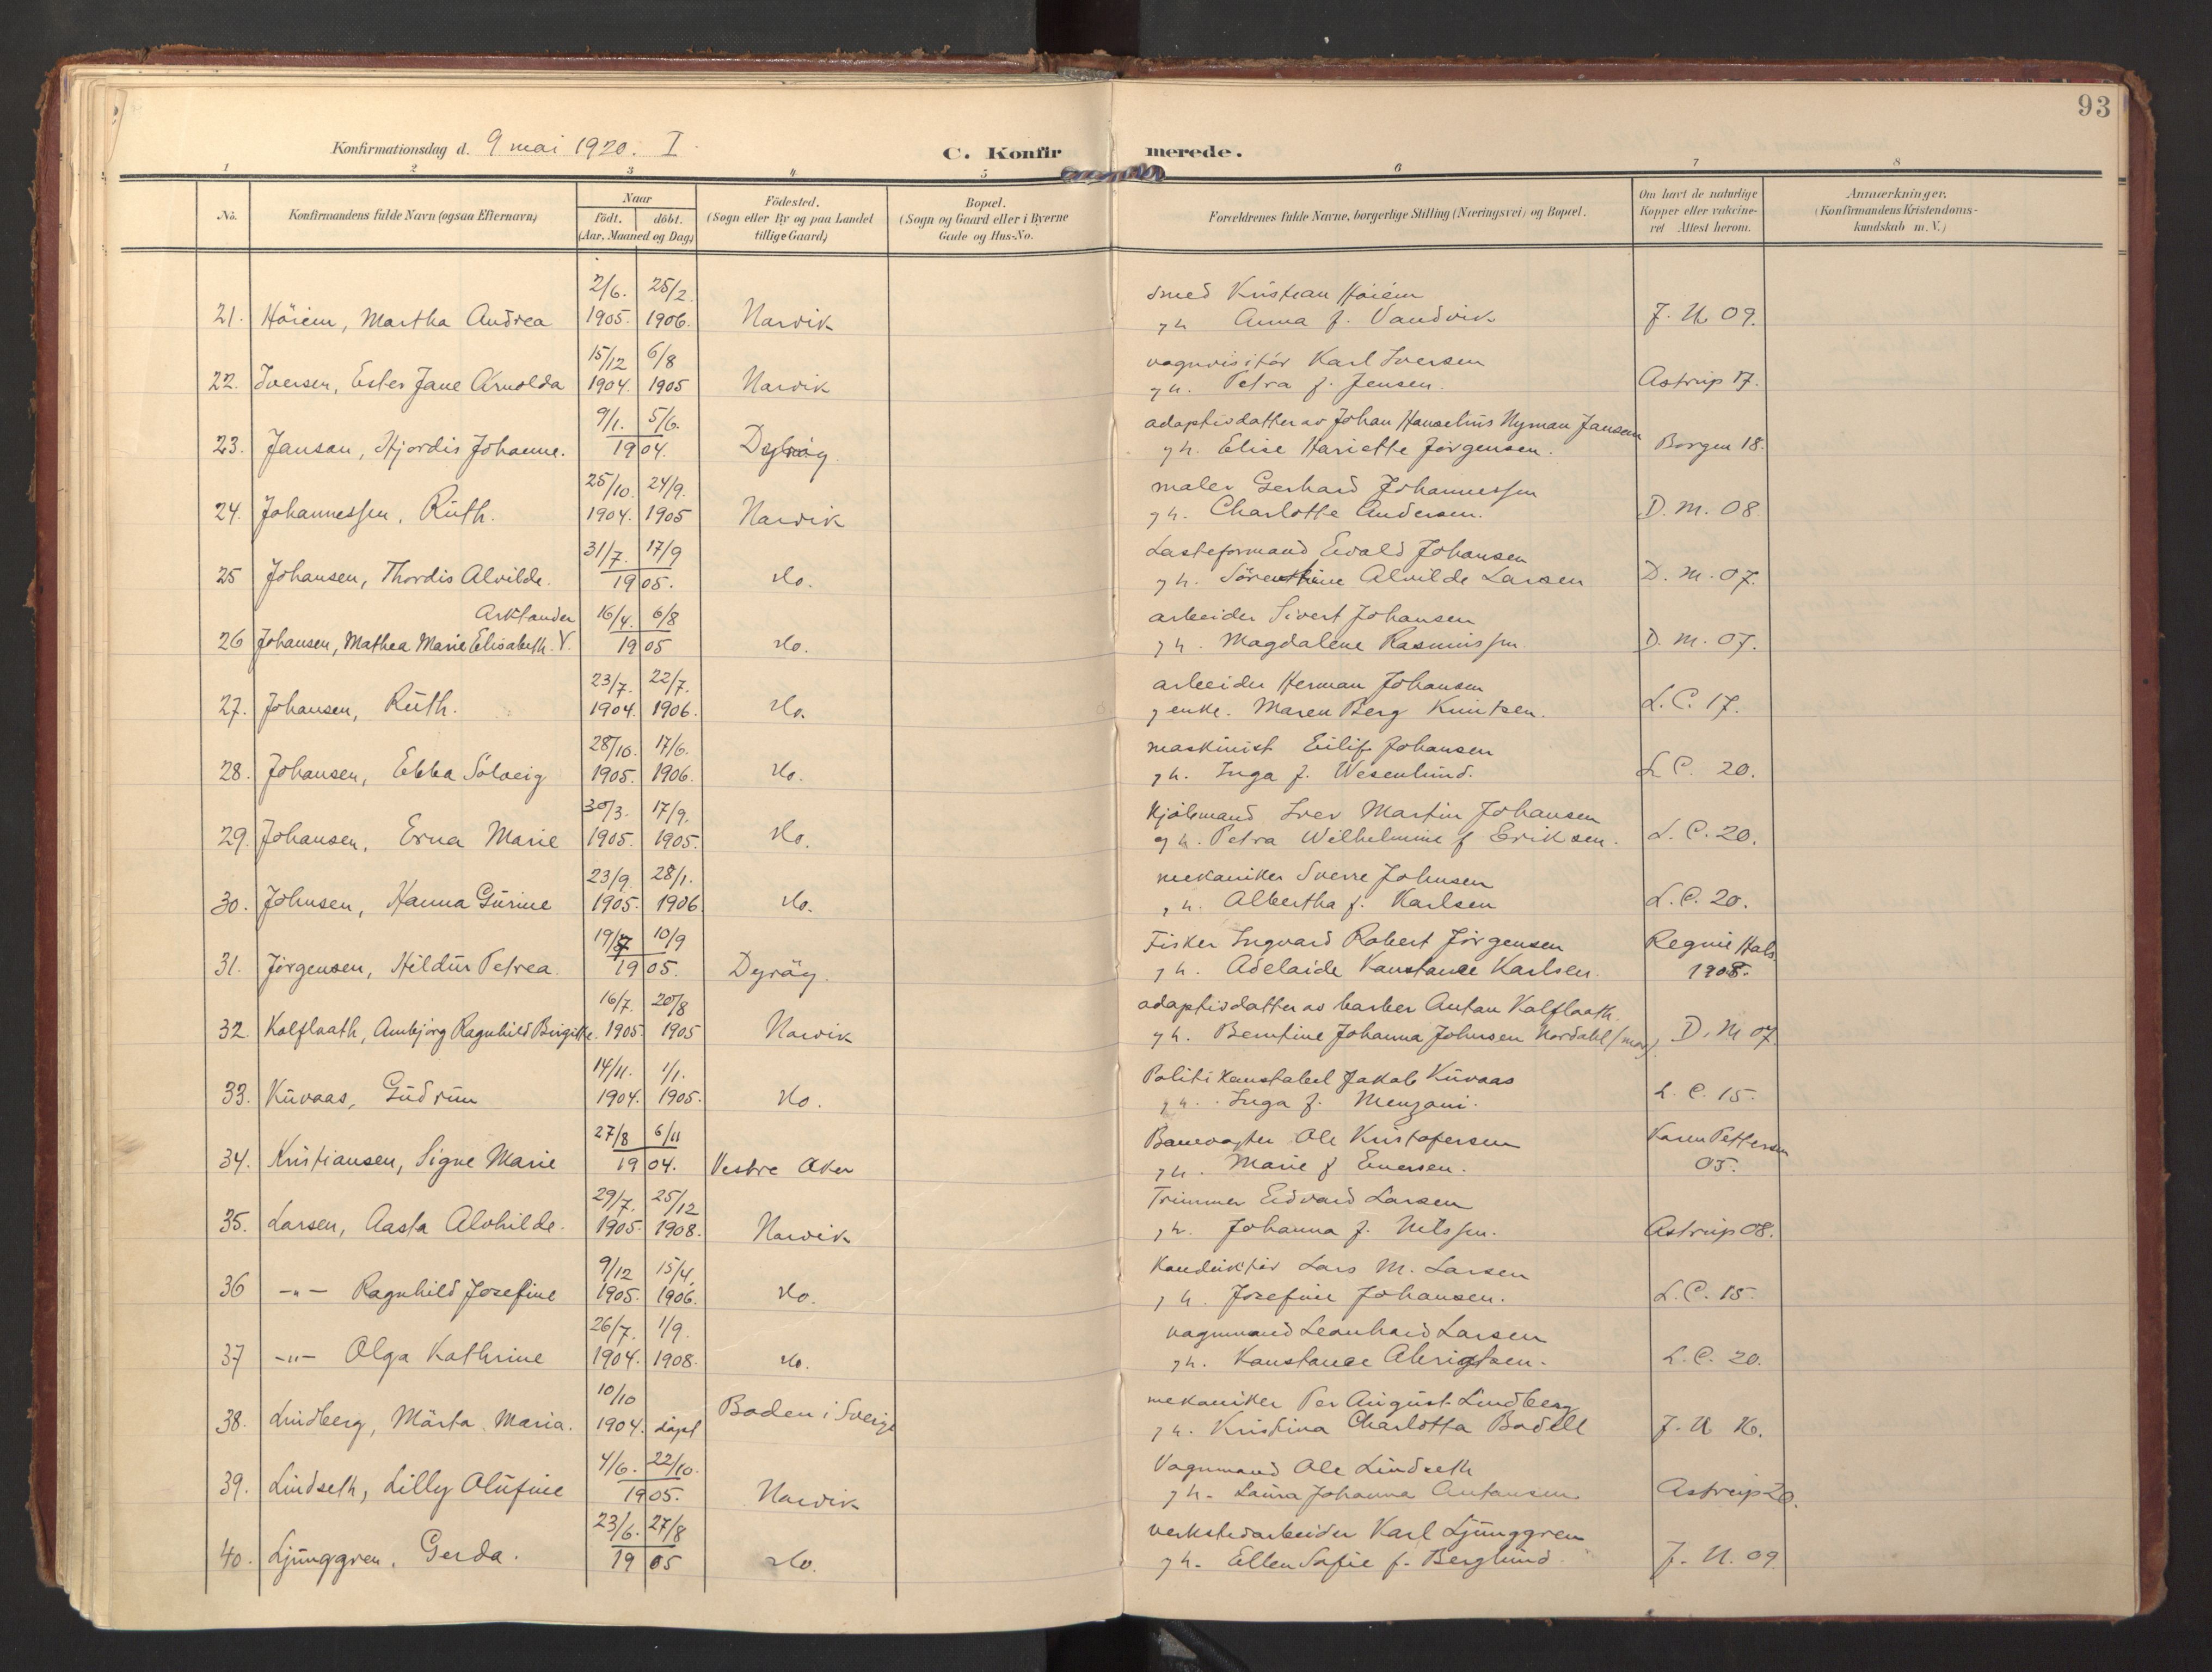 93
Konfirmationsdag d. 9 mai 1920. I
C. Konfirmerede.
1 2 3 4 5 6 7 8
No. Konfirmandens fulde Navn (ogsaa Efternavn) Naar födt. döbt. (Aar, Maaned og Dag) Födested. (Sogn eller By og paa Landet tillige Gaard) Bopæl. (Sogn og Gaard eller i Byerne Gade og Hus-No. Forældrenes fulde Navne, borgerlige Stilling (Næringsvei) og Bopæl. Om havt de naturlige Kopper eller vakcineret Attest herom. Anmærkninger. (Konfirmandens Kristendomskundskab m. V.)
2/6. 25/2. smed Kristian Höiem
21. Höiem, Martha Andrea 1905. 1906. Narvik g h Anna f. Vandvik J. N. 09.
15/12 6/8 vognvisitör Karl Iversen
22. Iversen, Ester Jane Arnolda 1904. 1905 Narvik g h. Petra f. Jensen. Astrup 17.
9/1. 5/6. adoptivdatter av Johan Hanselius Nyman Jansen
23. Janson, Hjordis Johanne. 1904. Dyröy g h. Elise Hariette Jörgensen. Borgen 18.
25/10. 24/9. maler Gerhard Johannessen
24. Johannessen, Ruth. 1904. 1905 Narvik g h. Charlotte Andersen. D. M. 08
31/7. 17/9 Lasteformand Evald Johansen
25 Johansen, Thordis Alvilde. 1905. do. g h. Sörenstine Alvilde Larsen D. M. 07.
Arktander 16/4. 6/8 arbeider Sivert Johansen
26 Johansen, Mathea Marie Elisabeth V. 1905 do. g h. Magdalene Rasmussen D. M. 07.
23/7. 22/7. arbeider Herman Johansen
27. Johansen, Ruth. 1904. 1906. do. g enke. Maren Berg Knutsen. L. C. 17.
28/10. 17/6. maskinist Eilif Johansen
28. Johansen, Ebba Solveig 1905. 1906. do. g h. Inga f. Wesenlund. L. C. 20.
30/3. 17/9. Kjölemand Iver Martin Johansen
29. Johansen, Erna Marie 1905. 1905. do. g h. Petra Wilhelmine f Eriksen. L. C. 20.
23/9. 28/1. mekaniker Sverre Johnsen
30. Johnsen, Hanna Gurine 1905. 1906 do. g h. Albertha f. Karlsen L. C. 20.
19/7 10/9 Fisker Ingvard Robert Jörgensen Regine Hals
31. Jörgensen, Hildur Petrea. 1905. Dyröy. g h. Adelaide Konstance Karlsen. 1908.
16/7. 20/8 adoptivdatter av barber Anton Kolflaath.
32. Kolflaath, Annbjörg Ragnhild Birgitte. 1905 1905 Narvik g h. Berntine Johanna Johnsen Nordahl (mor). D. M 07.
14/11. 1/1. Politikonstabel Jakob Kuvaas
33. Kuvaas, Gudrun 1904. 1905. do. g h. Inga f. Menzoni. L. C. 15.
27/8 6/11 Banevogter Ole Kristofersen Karen Pettersen
34. Kristiansen, Signe Marie 1904. Vestre Aker g h. Marie f Enersen. 05.
29/7. 25/12 Trimmer Edvard Larsen
35. Larsen, Aasta Alvhilde. 1905. 1908. Narvik g h. Johanna f. Nilssen. Astrup 08.
9/12 15/4. Konduktör Lars M. Larsen
36 -"- Ragnhild Josefine 1905. 1906. do. g h. Josefine Johansen. L. C. 15.
26/7. 1/9. vognmand Leonhard Larsen
37 -"- Olga Kathrine 1904. 1908. do. g h. Konstance L. C. 20.
10/10 Boden i Sverige mekaniker Per August Lindberg
38. Lindberg, Märta Maria. 1904. g h. Kristina Charlotta Bodell J. N 16.
4/6. 22/10. Vognmand Ole Lindseth
39. Lindseth, Lilly Olufine 1905. Narvik g h. Laura Johanna Antonsen Astrup 20.
23/6. 27/8 verkstedarbeider Karl Ljunggren
40. Ljunggren, Gerda. 1905 do. g h. Ellen Sofie f. Berglund J. N. 09.